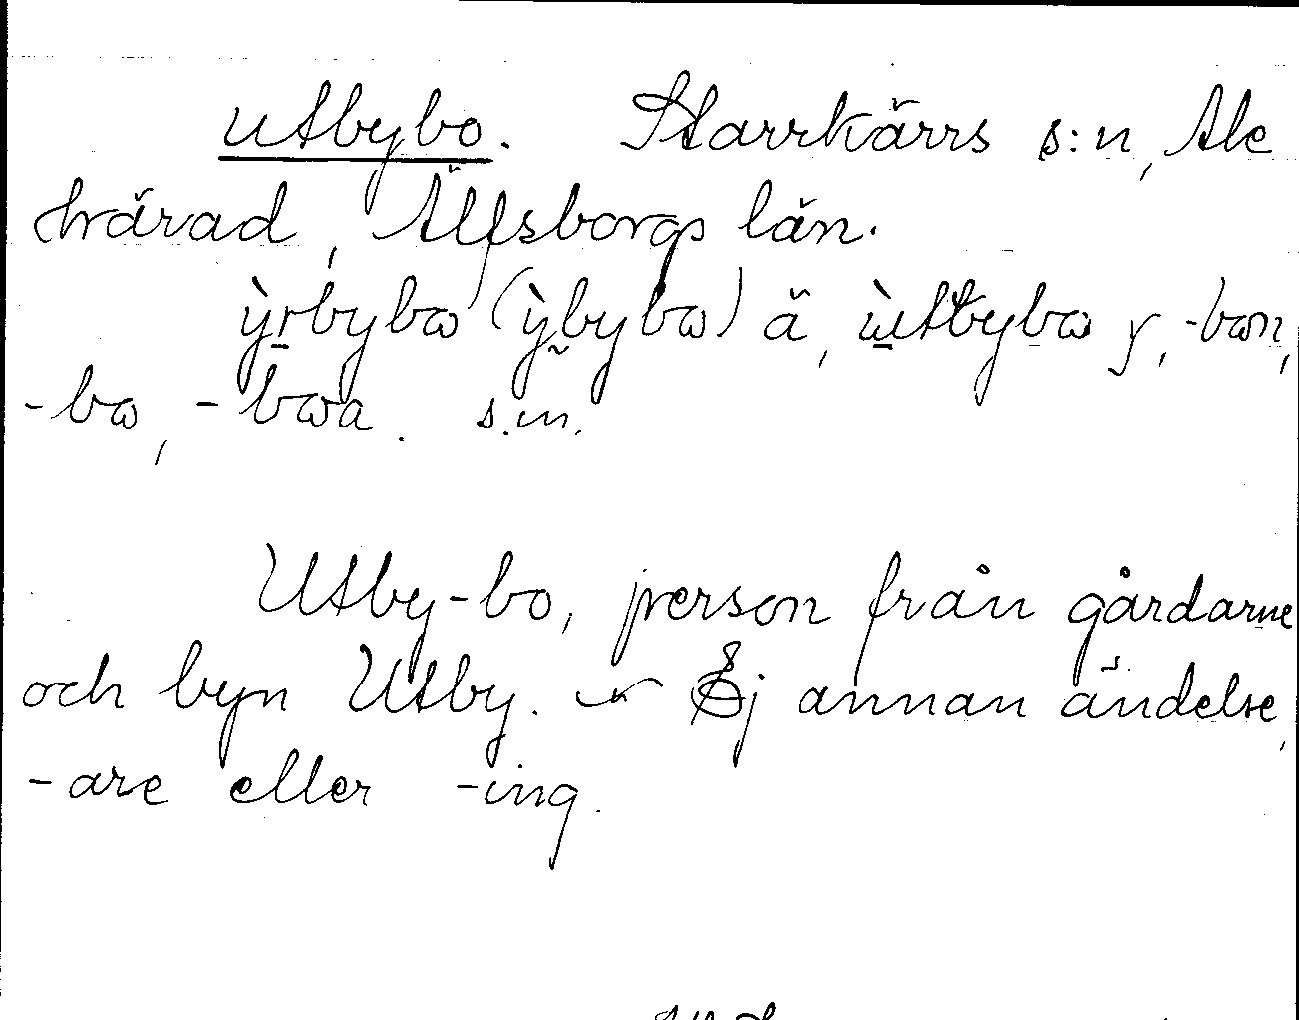 utbybo. Starrkärrs s:n, Ale
härad, Älfsborgs län.
ỳrbybɷ (ỳbybɷ) ä, ùtbybɷ y, -bɷn,
-bɷ, -bɷa. s.m.
Utby-bo, person från gårdarne
och byn Utby. Ej annan ändelse,
-are eller -ing.